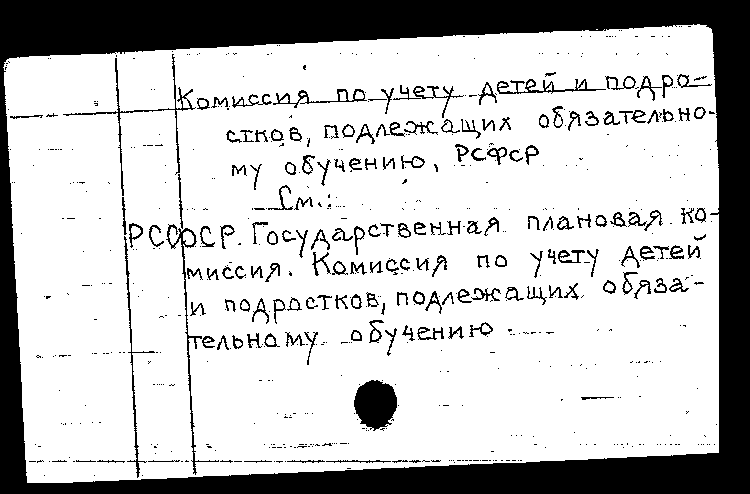 Комиссия по учету детей и подро-
стков, подлежащих обязательно-
му обучению, РСФСР
См.:
РСФСР. Государственная плановая ко-
миссия. Комиссия по учету детей
и подростков, подлежащих обяза-
тельному обучению.